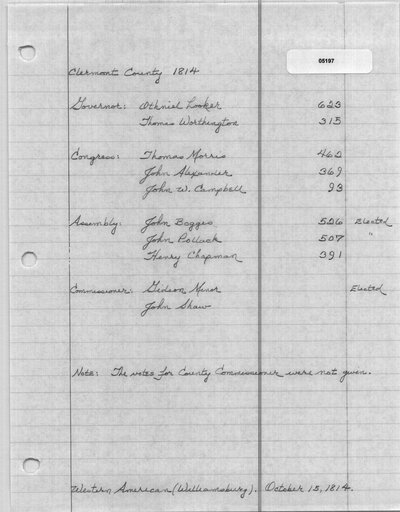 05197
Clermont County 1814
Governor: Othniel Looker 623
Thomas Worthington 315
Congress: Thomas Morris 462
John Alexander 369
John W. Campbell 93
Assembly: John Boggess 526 Elected
John Pollock 507 "
Henry Chapman 391
Commissioner: Gideon Minor Elected
John Shaw
Note: The votes for County Commissioner were not given.
Western American (Williamsburg). October 15, 1814.